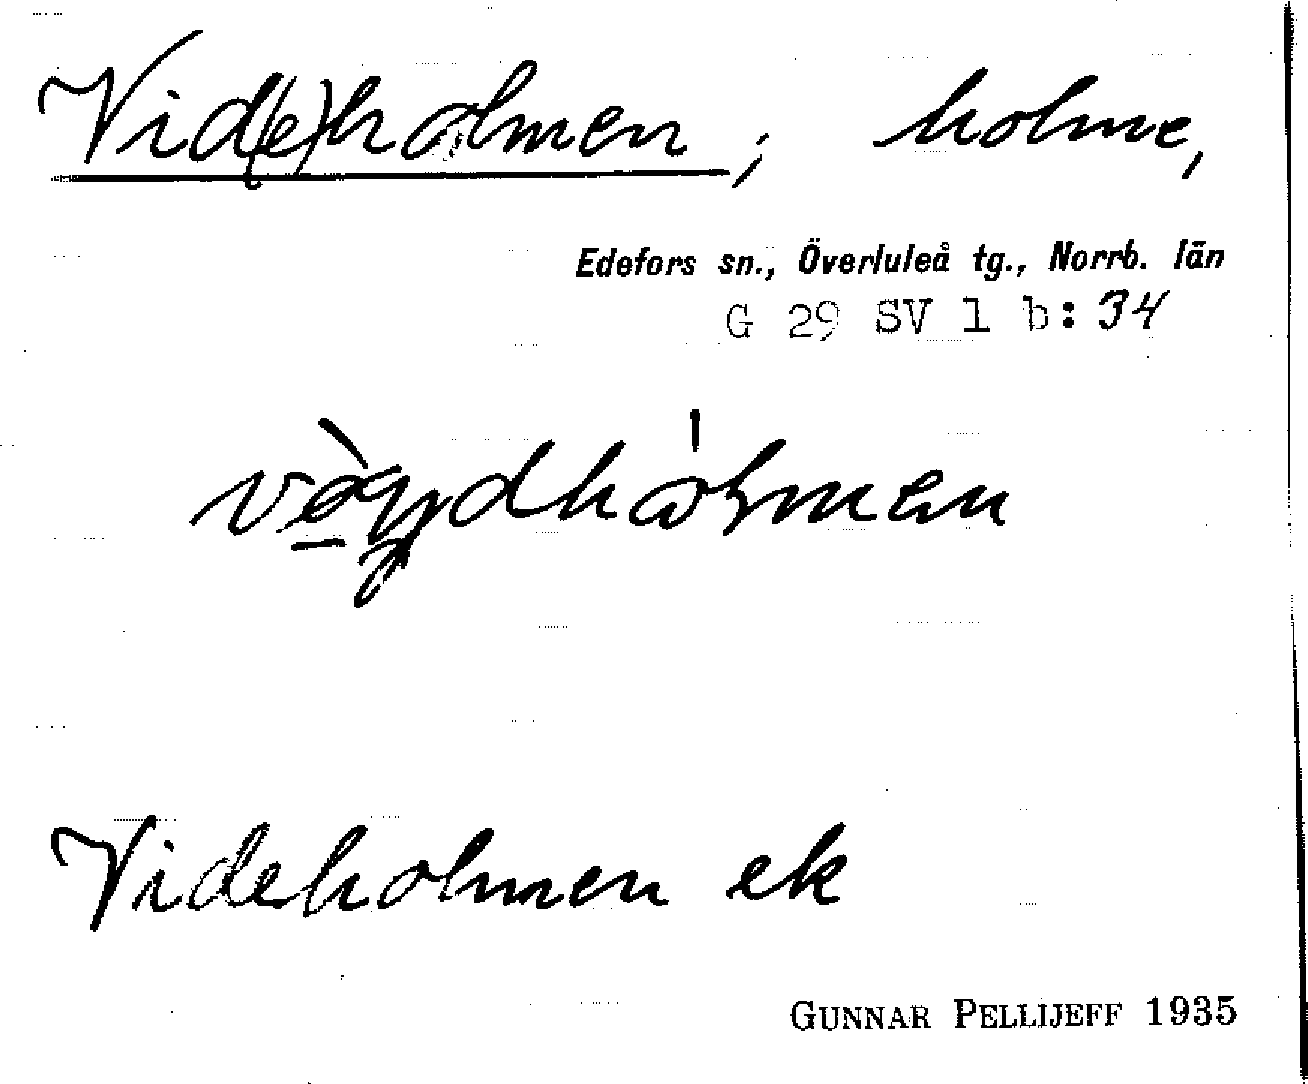 Vid(e)holmen; holme,
Edefors sn., Överluleå tg., Norrb. län
G 29 SV 1 b:34
Videholmen ek
GUNNAR PELLIJEFF 1935